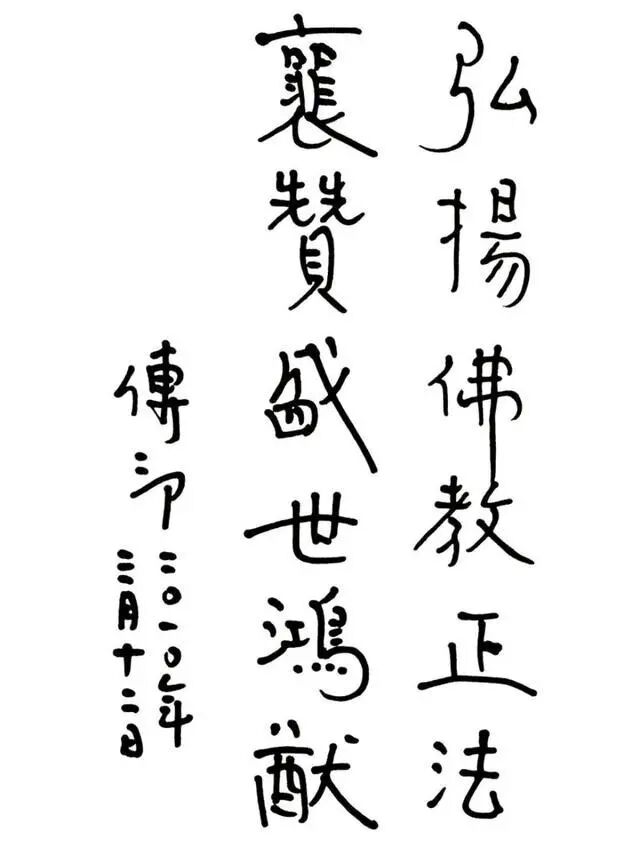 弘揚佛教正法
襄贊盛世鴻猷
傳印二〇一〇年
三月十二日